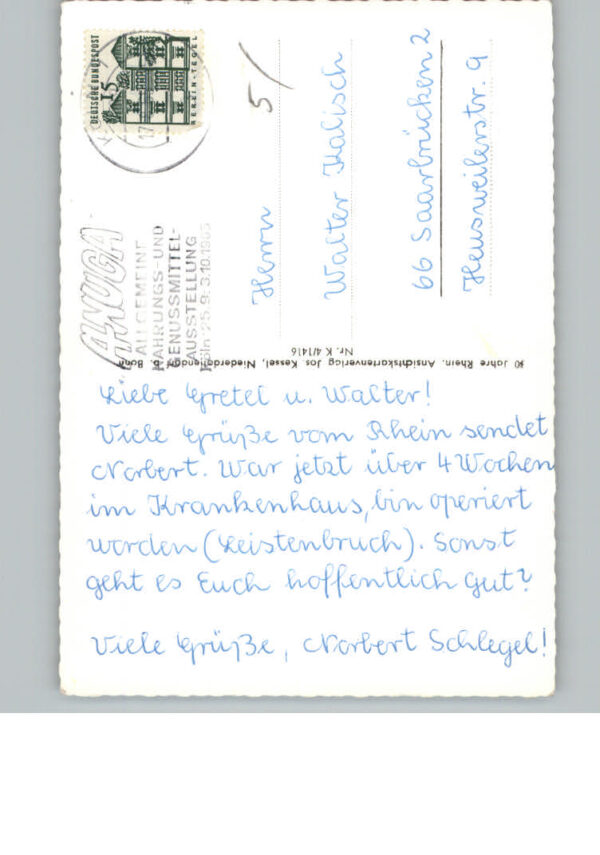 DEUTSCHE BUNDESPOST
15
BERLIN-TEGEL
17
ANUGA
ALLGEMEINE
NAHRUNGS-UND
GENUSSMITTEL-
AUSSTELLUNG
Köln 25.9.-3.10.1965
5/
Herrn
Walter Kalisch
66 Saarbrücken 2
Heusweilerstr. 9
Jahre Rhein. Ansichtskartenverlag Jos Kessel, Niederdollendorf b. Bonn
Nr. K 4/1416
Liebe Gretel u. Walter!
Viele Grüße vom Rhein sendet
Norbert. War jetzt über 4 Wochen
im Krankenhaus, bin operiert
worden (Leistenbruch). Sonst
geht es Euch hoffentlich gut?
Viele Grüße, Norbert Schlegel!